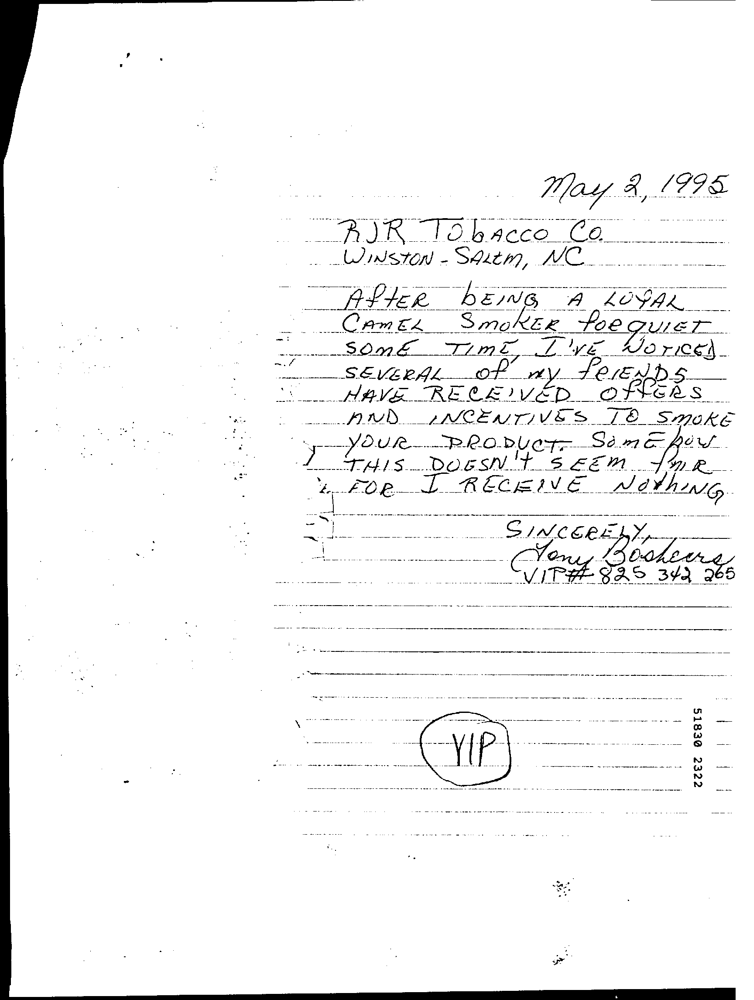 May 2, 1995
RJR Tobacco Co.
Winston-Salem, NC
After being a loyal
Camel smoker for quiet
some time, I've noticed
several of my friends
have received offers
and incentives to smoke
your product. Somehow
this doesn't seem fair
for I receive nothing
Sincerely,
Tony Boshears
VIP# 825 342 265
VIP
51830 2322